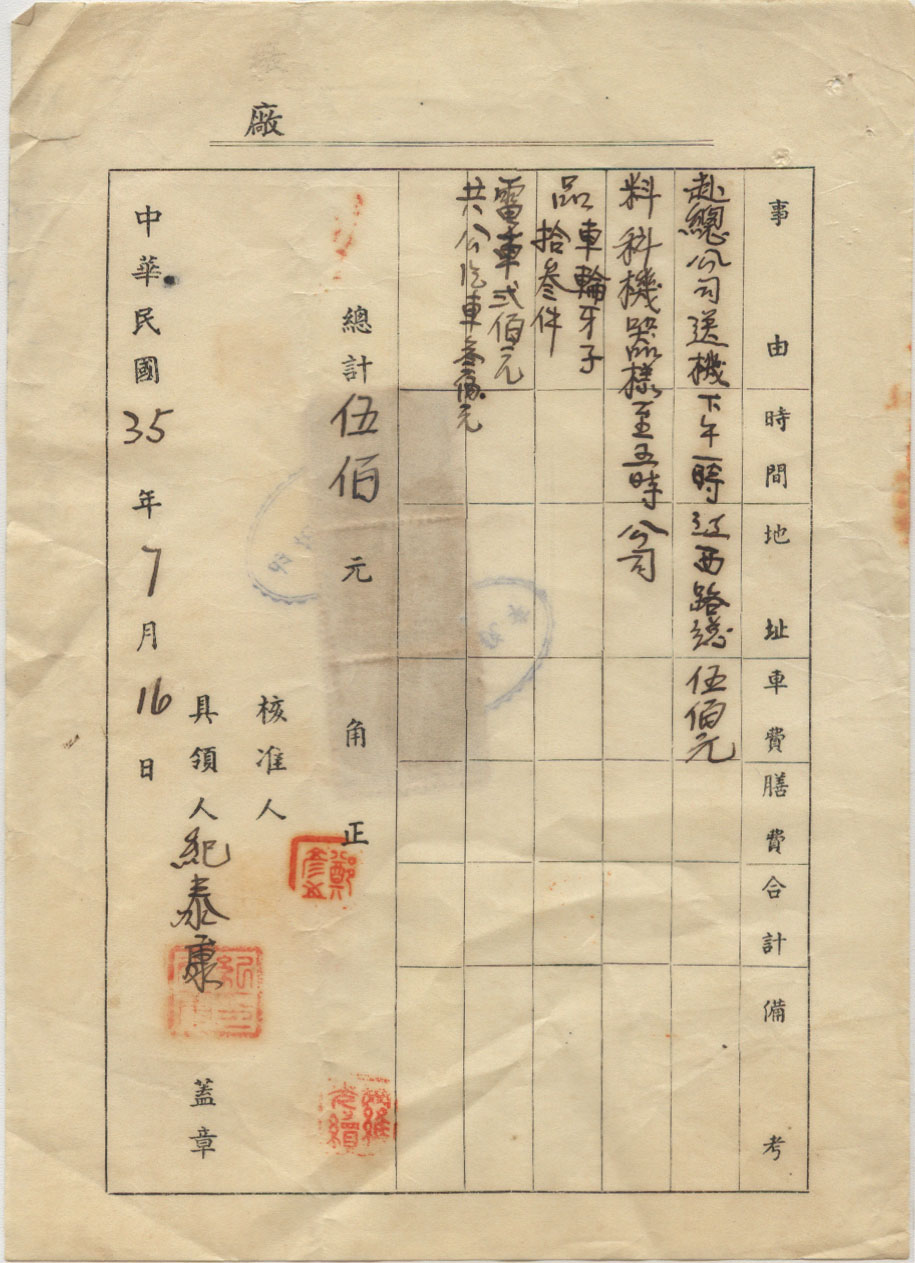 廠
事由 時間 地址 車費 膳費 合計 備考
赴總公司送機 下午一時 江西路總 伍佰元
料科機器樣 至五時 公司
品車輪牙子
拾叄件
電車弍佰元
共公汽車叁佰元
總計伍佰元 角正
核准人
具領人 紀泰康 蓋章
中華民國35年7月16日
鄭彥